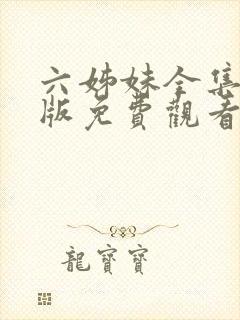 六姊妹全集
版免費觀看
龍寶寶